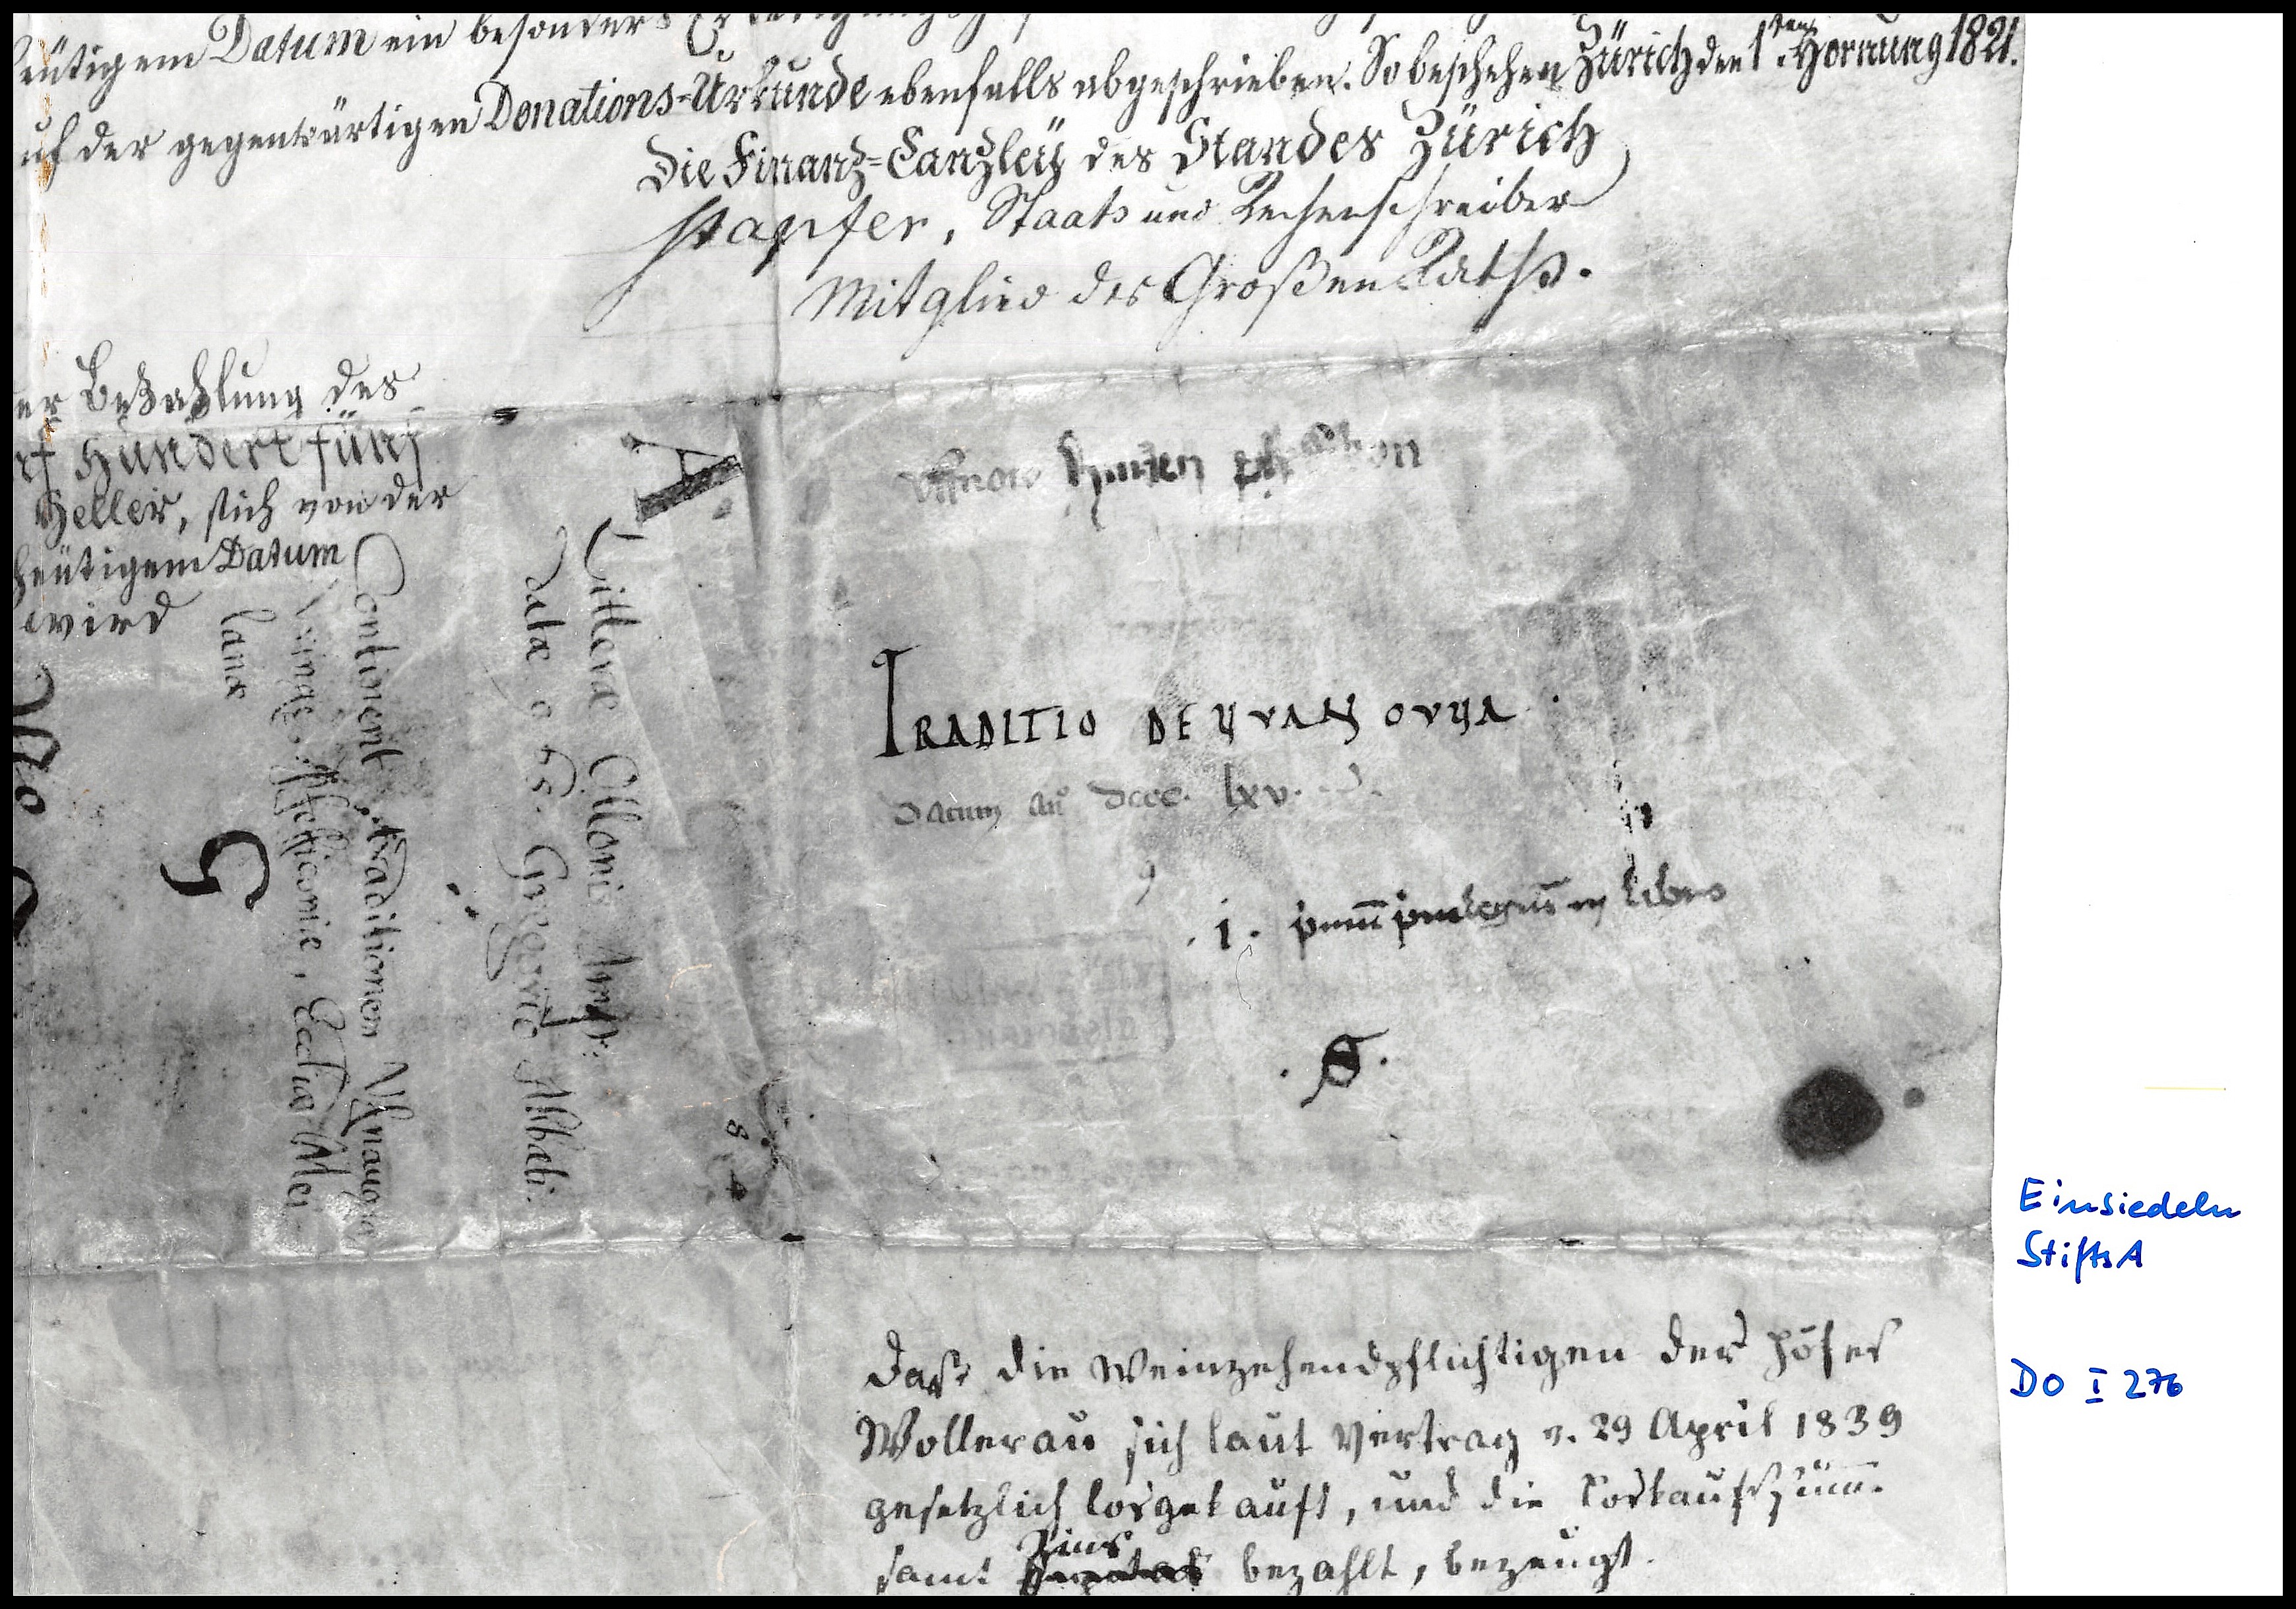 heütigem Datum ein besonders
auf der gegenwärtigen Donations-Urkunde ebenfalls abgeschrieben. So beschehen Zürich den 1sten Hornung 1821.
Die Finanz-Canzleÿ des Standes Zürich
Stapfer, Staats und Rechenschreiber
Mitglied des Großen Raths.
er Bezahlung des
rf Hundert fünf
Heller, sich von der
heütigem Datum
wird
A
Litterae Ottonis Imp:
datae 965. Gregorio Abbati.
Continent traditionem Vfnaugia
Pfefficonie, Eccliae Mei
lanae
5
vffnow
TRADITIO DE HVANOVHA
datum an° dcccc. lxv.
.i. in libro
.S.
8
4
Daß die Weinzehendpflichtigen der Höfes
Wollerau sich laut Vertrag v. 29 April 1839
gesetzlich losgekauft, und die Loskaufssumm.
samt Zins bezahlt, bezeugt.
Einsiedeln
StiftsA
DO I 276